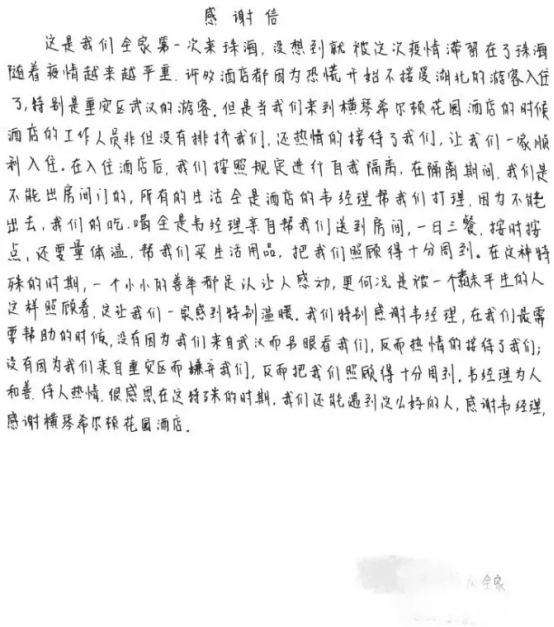 感谢信
这是我们全家第一次来珠海,没想到就被这次疫情滞留在了珠海
随着疫情越来越严重.许多酒店都因为恐慌开始不接受湖北的游客入住
了,特别是重灾区武汉的游客.但是当我们来到横琴希尔顿花园酒店的时候
酒店的工作人员非但没有排挤我们,还热情的接待了我们,让我们一家顺
利入住.在入住酒店后,我们按照规定进行自我隔离,在隔离期间,我们是
不能出房间门的,所有的生活全是酒店的韦经理帮我们打理,因为不能
出去,我们的吃.喝全是韦经理亲自帮我们送到房间,一日三餐.按时按
点,还要量体温,帮我们买生活用品,把我们照顾得十分周到。在这种特
殊的时期,一个小小的善举都足以让人感动,更何况是被一个素未平生的人
这样照顾着,这让我们一家感到特别温暖.我们特别感谢韦经理,在我们最需
要帮助的时候,没有因为我们来自武汉而另眼看我们,反而热情的接待了我们;
没有因为我们来自重灾区而嫌弃我们,反而把我们照顾得十分周到.韦经理为人
和善.待人热情.很感恩在这特殊的时期.我们还能遇到这么好的人,感谢韦经理,
感谢横琴希尔顿花园酒店.
全家